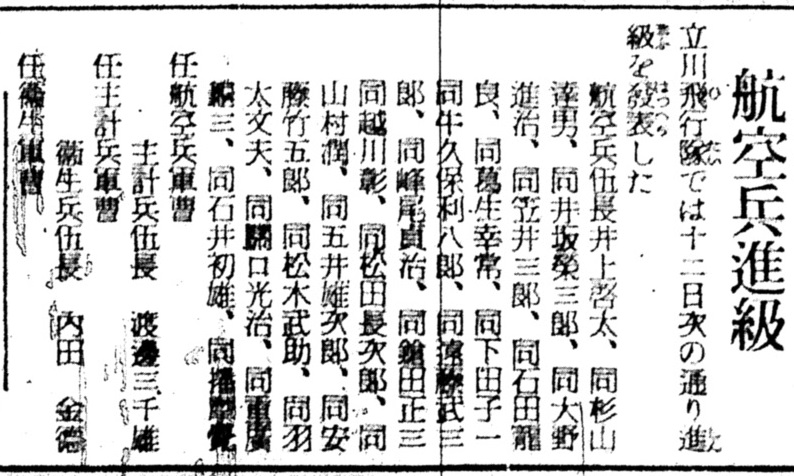 航空兵進級
立川飛行隊では十二日次の通り進
級を發表した
航空兵伍長井上啓太、同杉山
達男、同井坂榮三郎、同大野
進治、同笠井三郎、同石田龍
良、同葛生幸常、同下田子一
同牛久保利八郎、同遠藤武三
郎、同峰尾貞治、同鎗田正三
同越川彰、同松田長次郎、同
山村潤、同五井雄次郎、同安
藤竹五郎、同松木武助、同羽
太文夫、同關口光治、同重廣
三、同石井初雄、同
任航空兵軍曹
主計兵伍長 渡邊三千雄
任主計兵軍曹
衞生兵伍長 内田 金德
任衞生軍曹